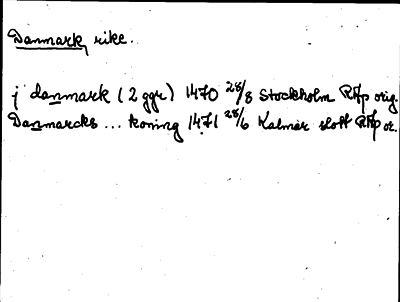 Danmark, rike.
j danmark (2 ggr) 1470 28/8 Stockholm RAp orig.
Danmarcks ... koning 1471 28/6 Kalmar slott RAp or.